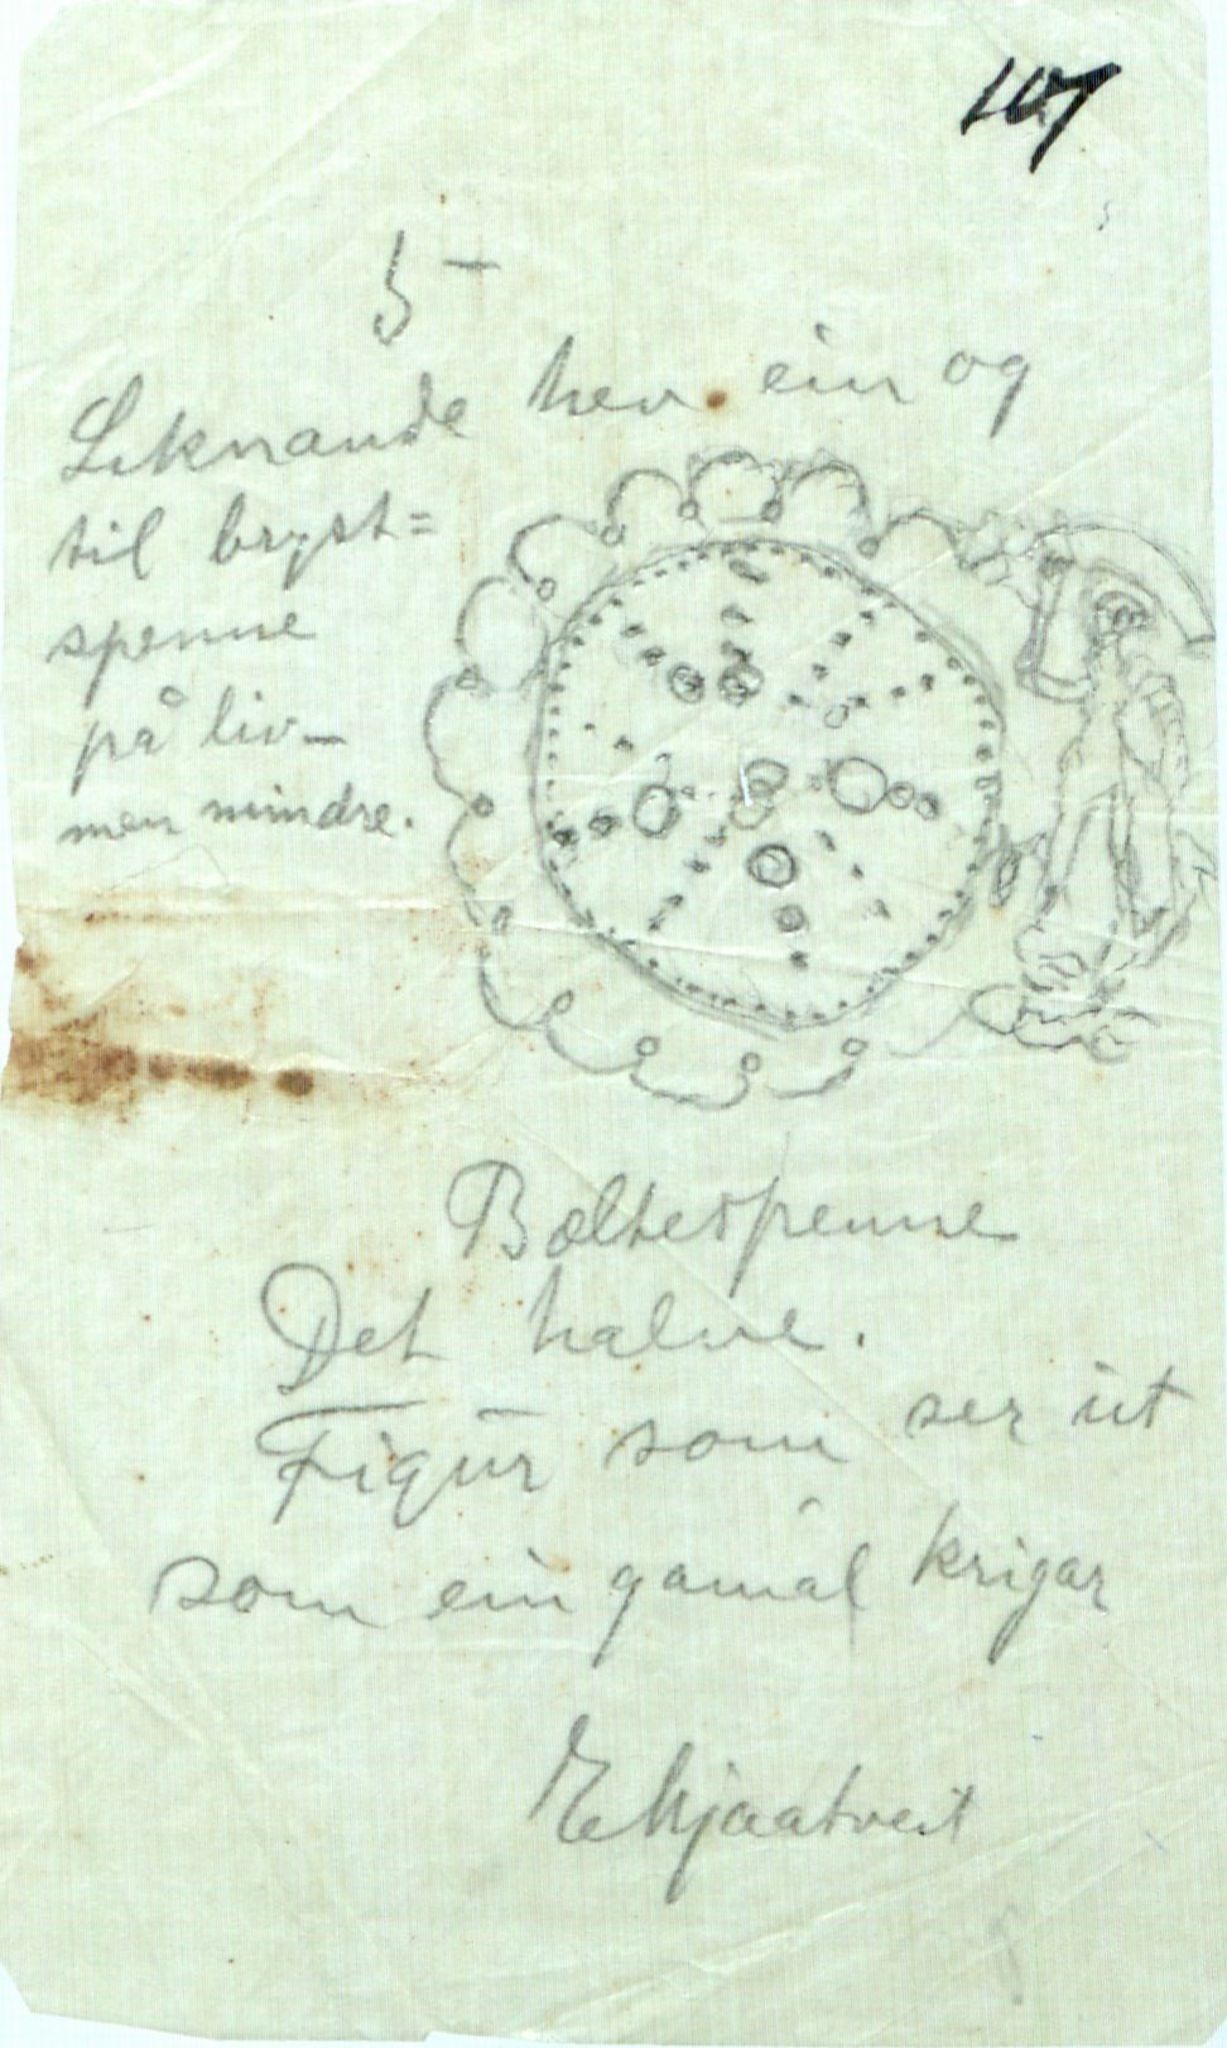 107
5
Liknande hev ein og
til bryst=
spenne
på liv-
men mindre.
Bæltespenne
Det halve.
Figur som ser ut
som ein gamal krigar